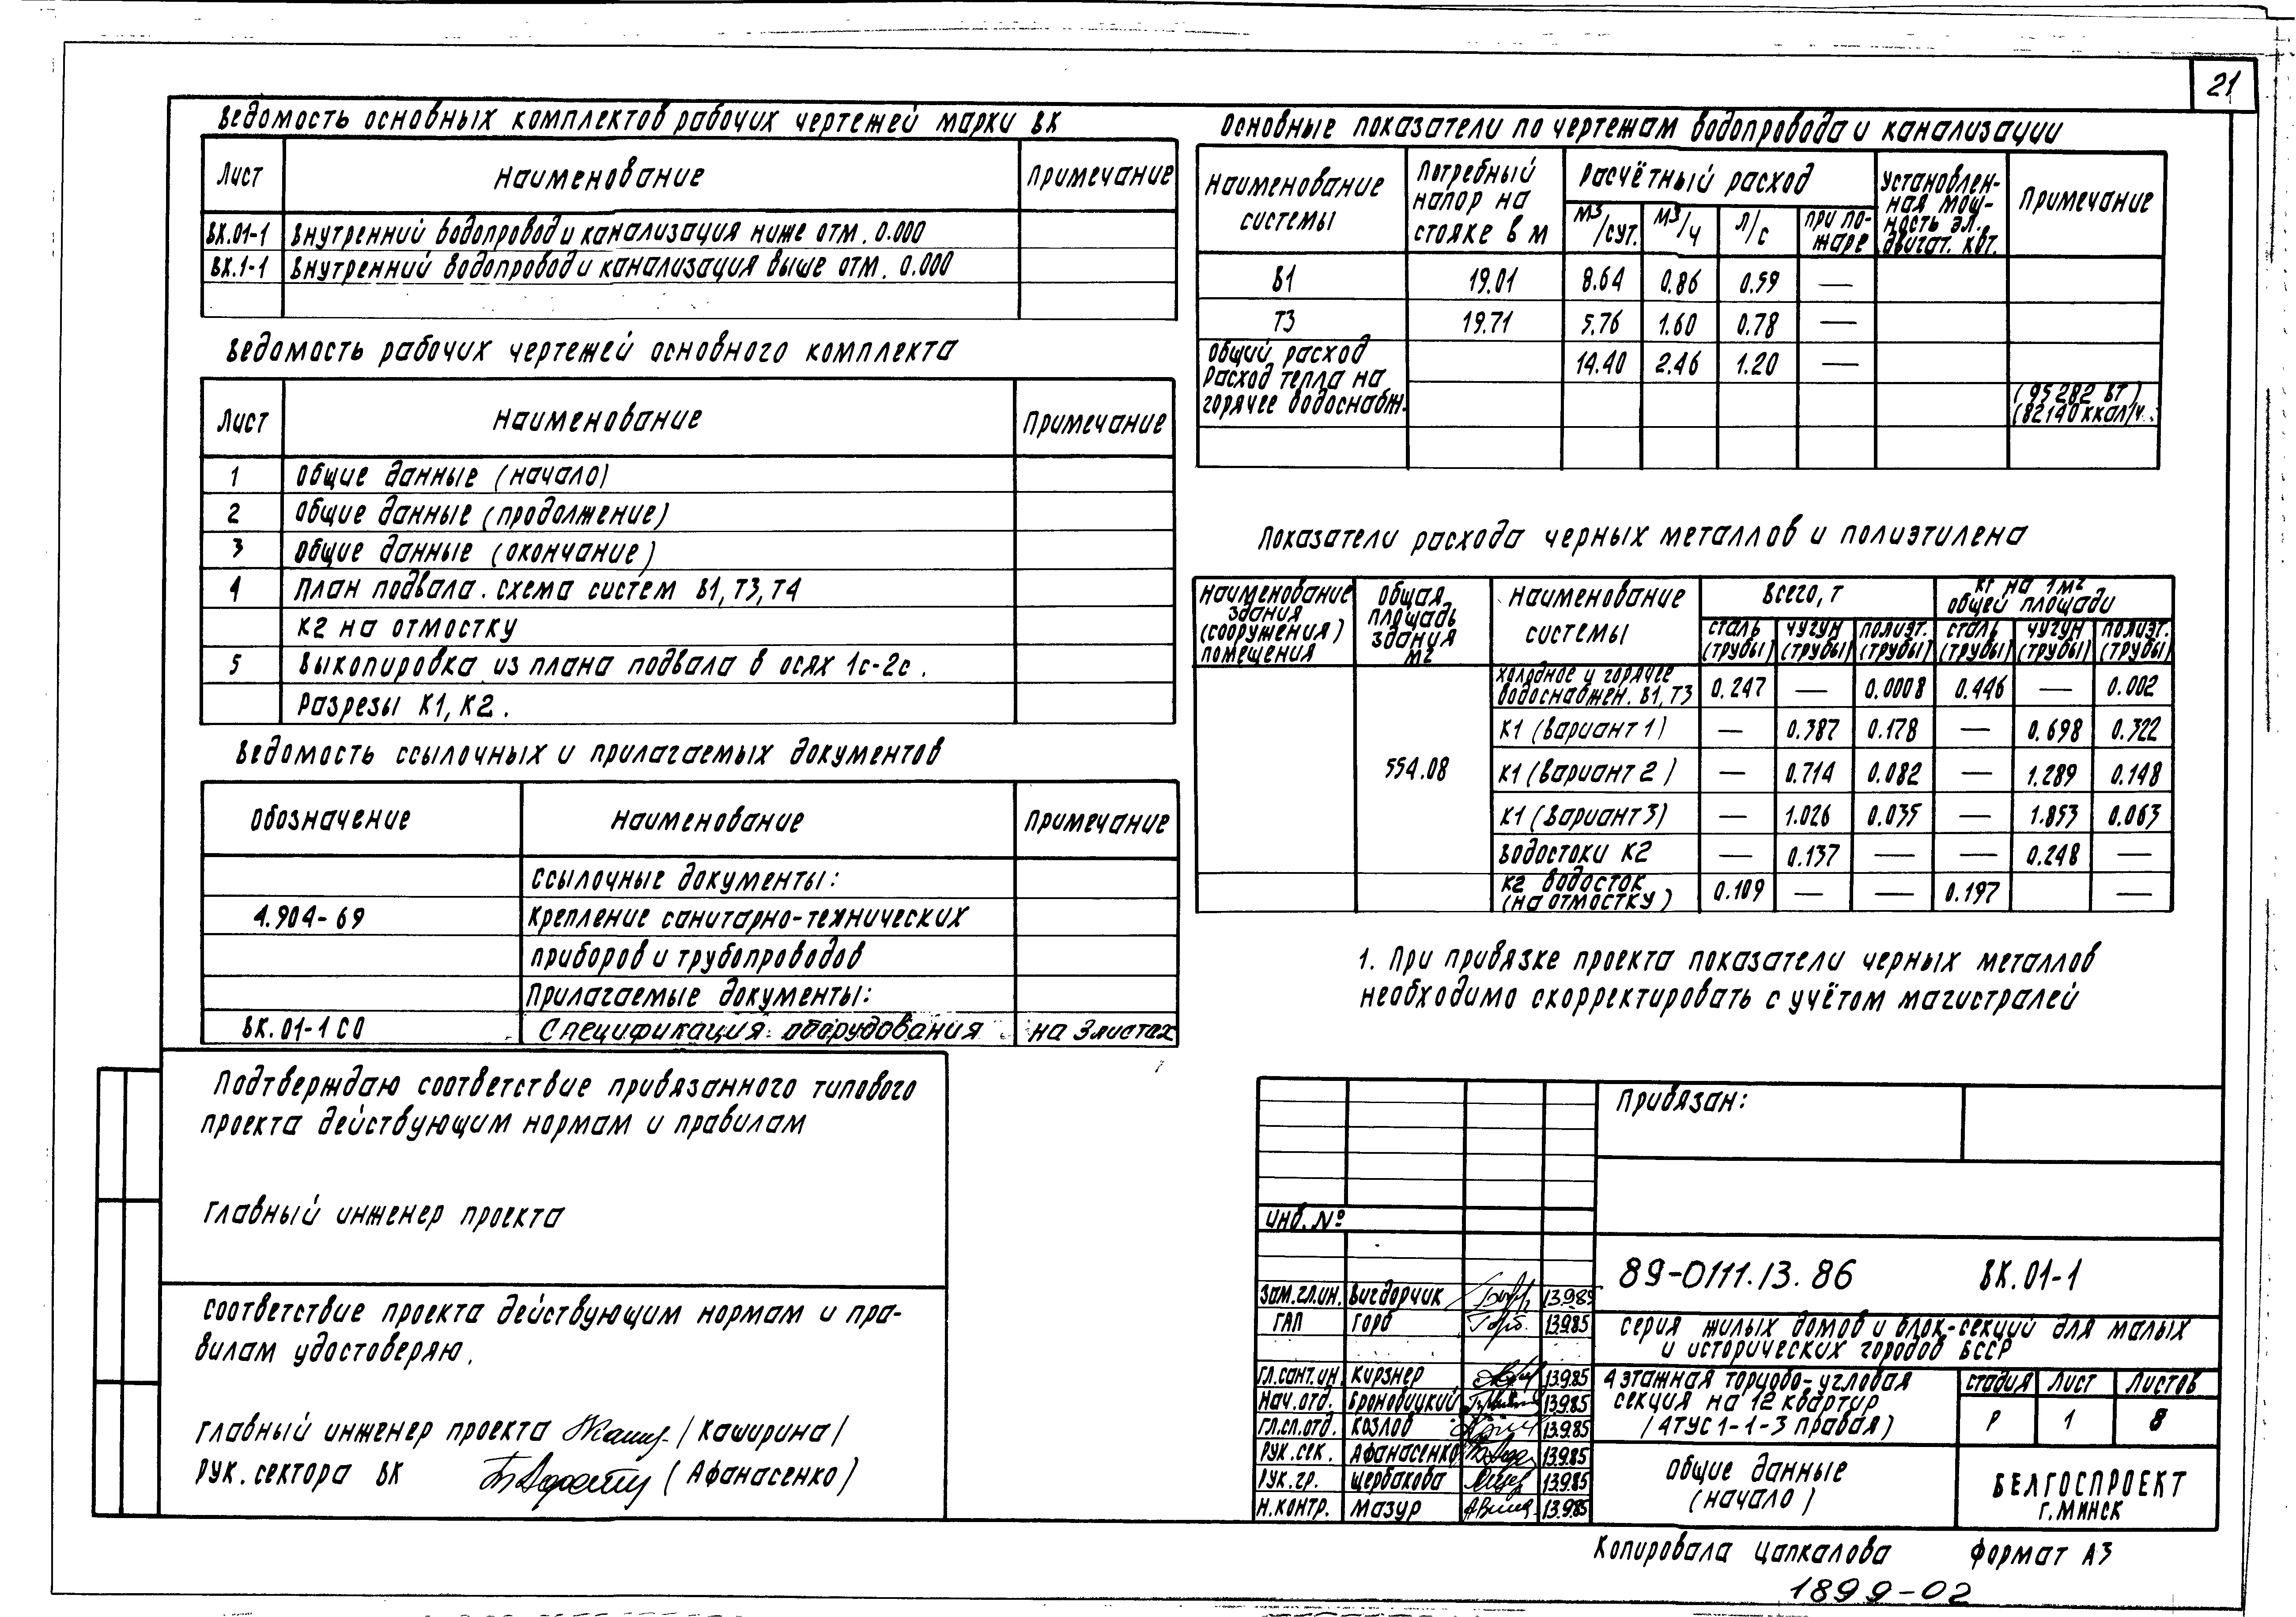 21
Ведомость основных комплектов рабочих чертежей марки ВК
Лист Наименование Примечание
ВК.01-1 Внутренний водопровод и канализация ниже отм. 0.000
ВК.1-1 Внутренний водопровод и канализация выше отм. 0.000
Ведомость рабочих чертежей основного комплекта
Лист Наименование Примечание
1 Общие данные (начало)
2 Общие данные (продолжение)
3 Общие данные (окончание)
4 План подвала. Схема систем В1, Т3, Т4
К2 на отмостку
5 Выкопировка из плана подвала в осях 1с-2с.
Разрезы К1, К2.
Ведомость ссылочных и прилагаемых документов
Обозначение Наименование Примечание
Ссылочные документы:
4.904-69 Крепление санитарно-технических
приборов и трубопроводов
Прилагаемые документы:
ВК.01-1 СО Спецификация оборудования на 3 листах
Подтверждаю соответствие привязанного типового
проекта действующим нормам и правилам
Главный инженер проекта
Соответствие проекта действующим нормам и пра-
вилам удостоверяю.
Главный инженер проекта /Каширина/
Рук. сектора ВК (Афанасенко)
Основные показатели по чертежам водопровода и канализации
Наименование системы Потребный напор на стояке в м Расчётный расход Установлен- ная мощ- ность эл. двигат. квт. Примечание
м3/сут. м3/ч л/с при по- жаре
В1 19.01 8.64 0.86 0.59 —
Т3 19.71 5.76 1.60 0.78 —
Общий расход 14.40 2.46 1.20 —
Расход тепла на
горячее водоснабж. (95282 Вт)
(82140 ккал/ч.)
Показатели расхода черных металлов и полиэтилена
Наименование здания (сооружения) помещения Общая площадь здания м2 Наименование системы Всего, т кг на 1м2 общей площади
сталь (трубы) чугун (трубы) полиэт. (трубы) сталь (трубы) чугун (трубы) полиэт. (трубы)
554.08
Холодное и горячее
водоснабжен. В1, Т3 0.247 — 0.0008 0.446 — 0.002
К1 (вариант 1) — 0.387 0.178 — 0.698 0.322
К1 (вариант 2) — 0.714 0.082 — 1.289 0.148
К1 (вариант 3) — 1.026 0.035 — 1.853 0.063
Водостоки К2 — 0.137 — — 0.248 —
К2 водосток
(на отмостку) 0.109 — — 0.197 —
1. При привязке проекта показатели черных металлов
необходимо скорректировать с учётом магистралей
Привязан:
Инв. №
89-0111.13.86 ВК.01-1
Зам.гл.ин. Вигдорчик 13.9.85
ГАП Горб 13.9.85
Гл.сант.ин. Кирзнер 13.9.85
Нач.отд. Броновицкий 13.9.85
Гл.сп.отд. Козлов 13.9.85
Рук.сек. Афанасенко 13.9.85
Рук.гр. Щербакова 13.9.85
Н.контр. Мазур 13.9.85
Серия жилых домов и блок-секций для малых
и исторических городов БССР
4 этажная торцово-угловая
секция на 12 квартир
(4ТУС1-1-3 правая)
Стадия Лист Листов
Р 1 8
Общие данные
(начало)
БЕЛГОСПРОЕКТ
г. МИНСК
Копировала Цапкалова Формат А3
1899-02